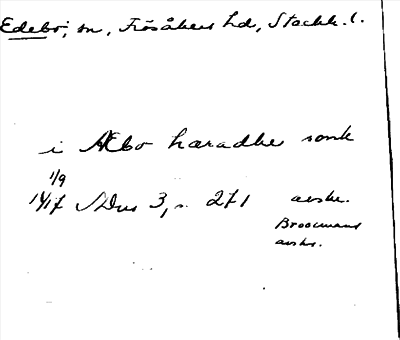 Edebo, sn, Frösåkers hd, Stockh. l.
i Æbo haradhe sonk
1/9
1417 SDns 3, s. 271 avskr.
Broocmans
avskr.